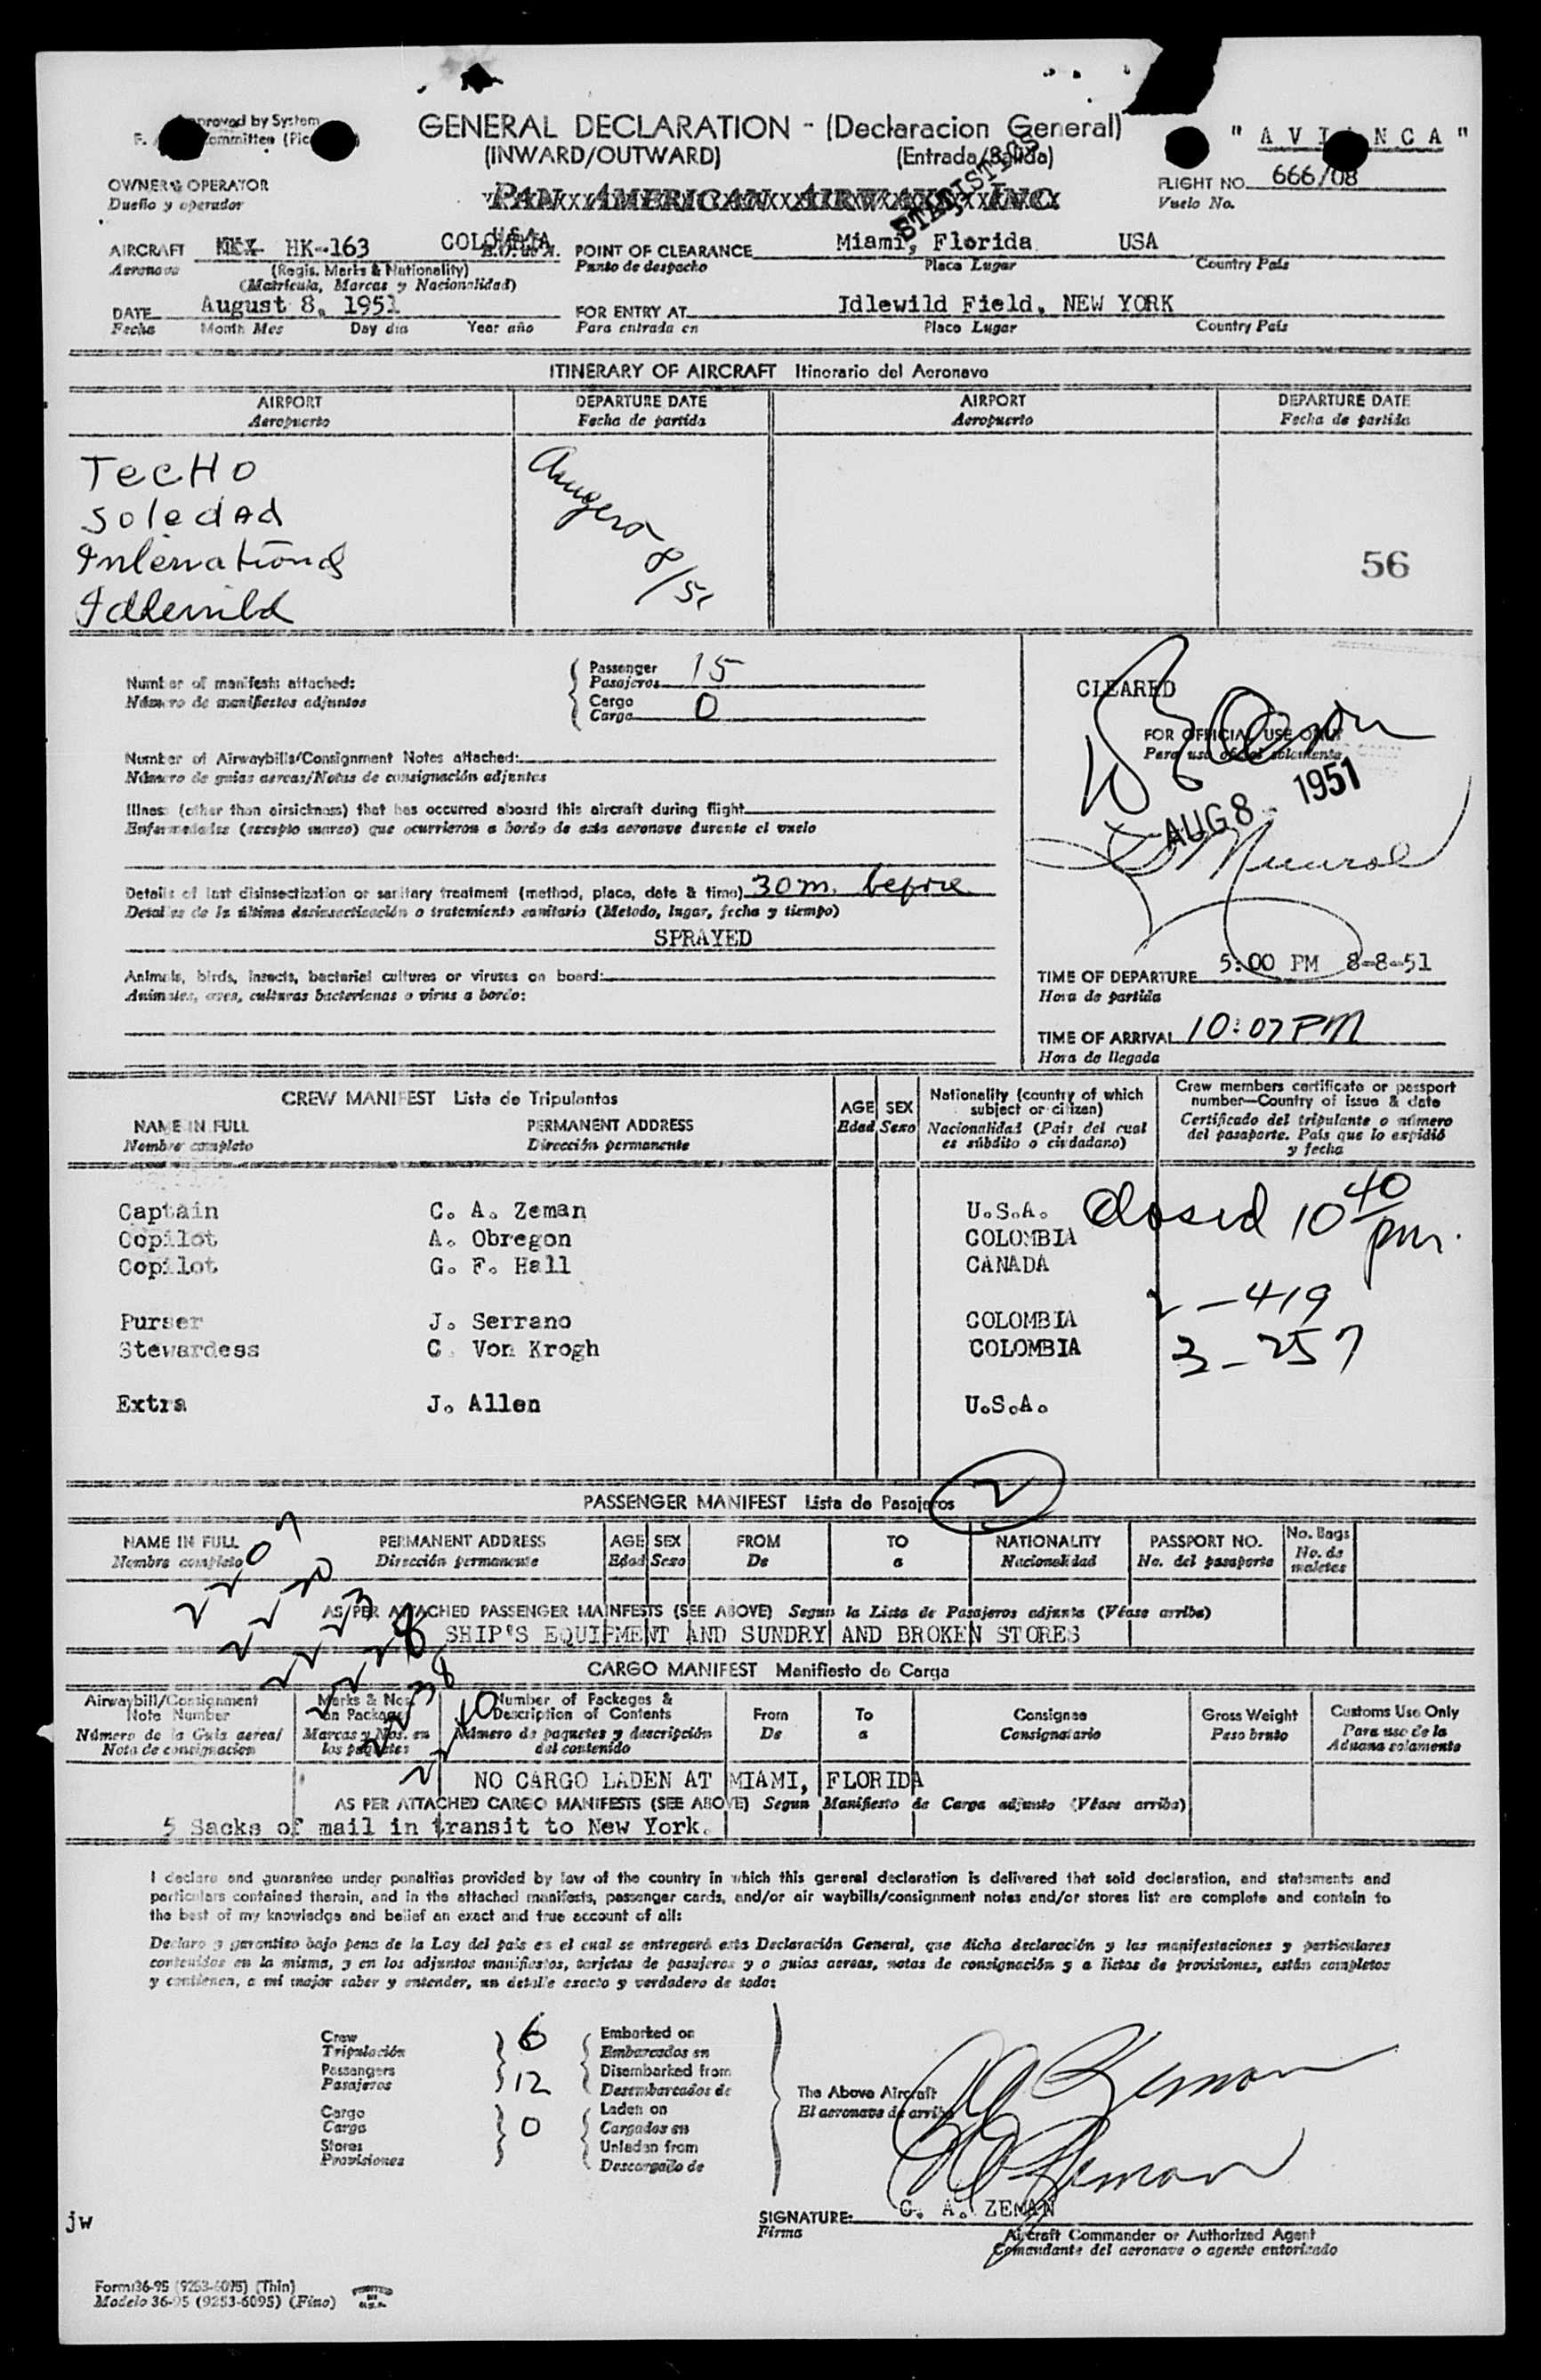 GENERAL DECLARATION - (Declaracion General)
(INWARD/OUTWARD) (Entrada/Salida)
"AVIANCA"
OWNER & OPERATOR
Dueño y operador
PAN AMERICAN AIRWAYS, INC.
STATISTICS
FLIGHT NO. 666/08
Vuelo No.
AIRCRAFT HK-163 COLOMBIA POINT OF CLEARANCE Miami, Florida USA
Aeronave (Regis. Marks & Nationality) Punto de despacho Place Lugar Country País
(Matrícula, Marcas y Nacionalidad)
DATE August 8, 1951 FOR ENTRY AT Idlewild Field, NEW YORK
Fecha Month Mes Day dia Year año Para entrada en Place Lugar Country País
ITINERARY OF AIRCRAFT Itinerario del Aeronave
AIRPORT DEPARTURE DATE AIRPORT DEPARTURE DATE
Aeropuerto Fecha de partida Aeropuerto Fecha de partida
TecHo
SoledAd
International
Idlewild
8/51
56
Number of manifests attached: Passenger 15
Número de manifiestos adjuntos Pasajeros
Cargo 0
Carga
CLEARED
FOR OFFICIAL USE ONLY
Para uso oficial solamente
AUG 8 - 1951
Number of Airwaybills/Consignment Notes attached:
Número de guias aereas/Notas de consignación adjuntes
Illness (other than airsickness) that has occurred aboard this aircraft during flight
Enfermedades (excepto mareo) que ocurrieron a bordo de esta aeronave durante el vuelo
Details of last disinsectization or sanitary treatment (method, place, date & time) 30 m. before
Detalles de la última desinsectización o tratamiento sanitario (Metodo, lugar, fecha y tiempo)
SPRAYED
Animals, birds, insects, bacterial cultures or viruses on board:
Animales, aves, culturas bacterianas o virus a bordo:
TIME OF DEPARTURE 5:00 PM 8-8-51
Hora de partida
TIME OF ARRIVAL 10:07 PM
Hora de llegada
CREW MANIFEST Lista de Tripulantos
NAME IN FULL PERMANENT ADDRESS AGE SEX Nationality (country of which subject or citizen) Crew members certificate or passport number—Country of issue & date
Nombre completo Dirección permanente Edad Sexo Nacionalidad (País del cual es súbdito o ciudadano) Certificado del tripulante o número del pasaporte. País que lo expidió y fecha
Captain C. A. Zeman U.S.A. Closed 10 40 pm.
Copilot A. Obregon COLOMBIA
Copilot G. F. Hall CANADA
Purser J. Serrano COLOMBIA 2-419
Stewardess C. Von Krogh COLOMBIA 3-257
Extra J. Allen U.S.A.
PASSENGER MANIFEST Lista de Pasajeros 2
NAME IN FULL PERMANENT ADDRESS AGE SEX FROM TO NATIONALITY PASSPORT NO. No. Bags
Nombre completo Dirección permanente Edad Sexo De a Nacionalidad No. del pasaporte No. de maletas
AS PER ATTACHED PASSENGER MAINFESTS (SEE ABOVE) Segun la Lista de Pasajeros adjunta (Véase arriba)
SHIP'S EQUIPMENT AND SUNDRY AND BROKEN STORES
CARGO MANIFEST Manifiesto de Carga
Airwaybill/Consignment Note Number Marks & Nos. on Packages Number of Packages & Description of Contents From To Consignee Gross Weight Customs Use Only
Número de la Guía aerea/ Nota de consignacion Marcas y Nos. en los paquetes Número de paquetes y descripción del contenido De a Consignatario Peso bruto Para uso de la Aduana solamente
NO CARGO LADEN AT MIAMI, FLORIDA
AS PER ATTACHED CARGO MANIFESTS (SEE ABOVE) Segun Manifiesto de Carga adjunto (Véase arriba)
5 Sacks of mail in transit to New York.
I declare and guarantee under penalties provided by law of the country in which this general declaration is delivered that said declaration, and statements and
particulars contained therein, and in the attached manifests, passenger cards, and/or air waybills/consignment notes and/or stores list are complete and contain to
the best of my knowledge and belief an exact and true account of all:
Declaro y garantizo bajo pena de la Ley del pais en el cual se entregará esta Declaración General, que dicha declaración y las manifestaciones y particulares
contenidos en la misma, y en los adjuntos manifiestos, tarjetas de pasajeros y o guias aereas, notas de consignación y a listas de provisiones, están completos
y contienen, a mi mejor saber y entender, un detalle exacto y verdadero de todo:
Crew 6 Embarked on
Tripulación Embarcados en
Passengers 12 Disembarked from
Pasajeros Desembarcados de
Cargo 0 Laden on
Carga Cargados en
Stores Unladen from
Provisiones Descargado de
The Above Aircraft
El aeronave de arriba
CA Zeman
CA Zeman
SIGNATURE: C. A. ZEMAN
Firma Aircraft Commander or Authorized Agent
Comandante del aeronave o agente autorizado
jw
Form 36-95 (9253-6095) (Thin)
Modelo 36-95 (9253-6095) (Fino)